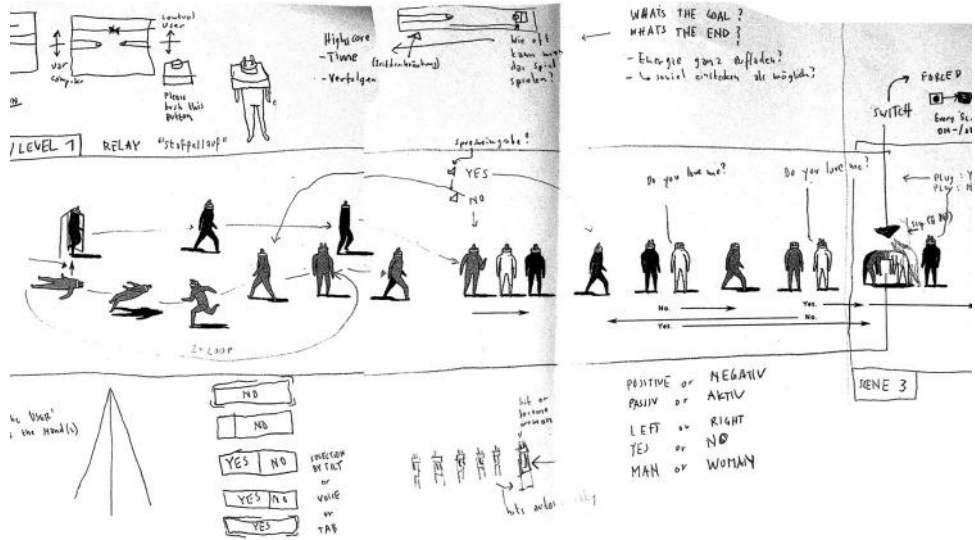 control
user
user
computer
Please
push this
button
Highscore
- Time
- Verfolgen
Wie oft
kann man
das Spiel
spielen?
WHATS THE GOAL?
WHATS THE END?
- Energie ganz aufladen?
- so viel einsiedeln als möglich?
FORCED
SWITCH
ON-/
/LEVEL 1
RELAY
"Stoffellauf"
Spracheingabe?
YES
NO
Do you love me?
Do you love me?
2x LOOP
No.
Yes.
Yes.
No.
NO
NO
YES NO
YES NO
YES
SELECTION
BY TILT
or
VOICE
or
TAB
USER'
the Hand(s)
hit or
become
woman
hits
POSITIVE or NEGATIV
PASSIV or AKTIV
LEFT or RIGHT
YES or NO
MAN or WOMAN
SCENE 3